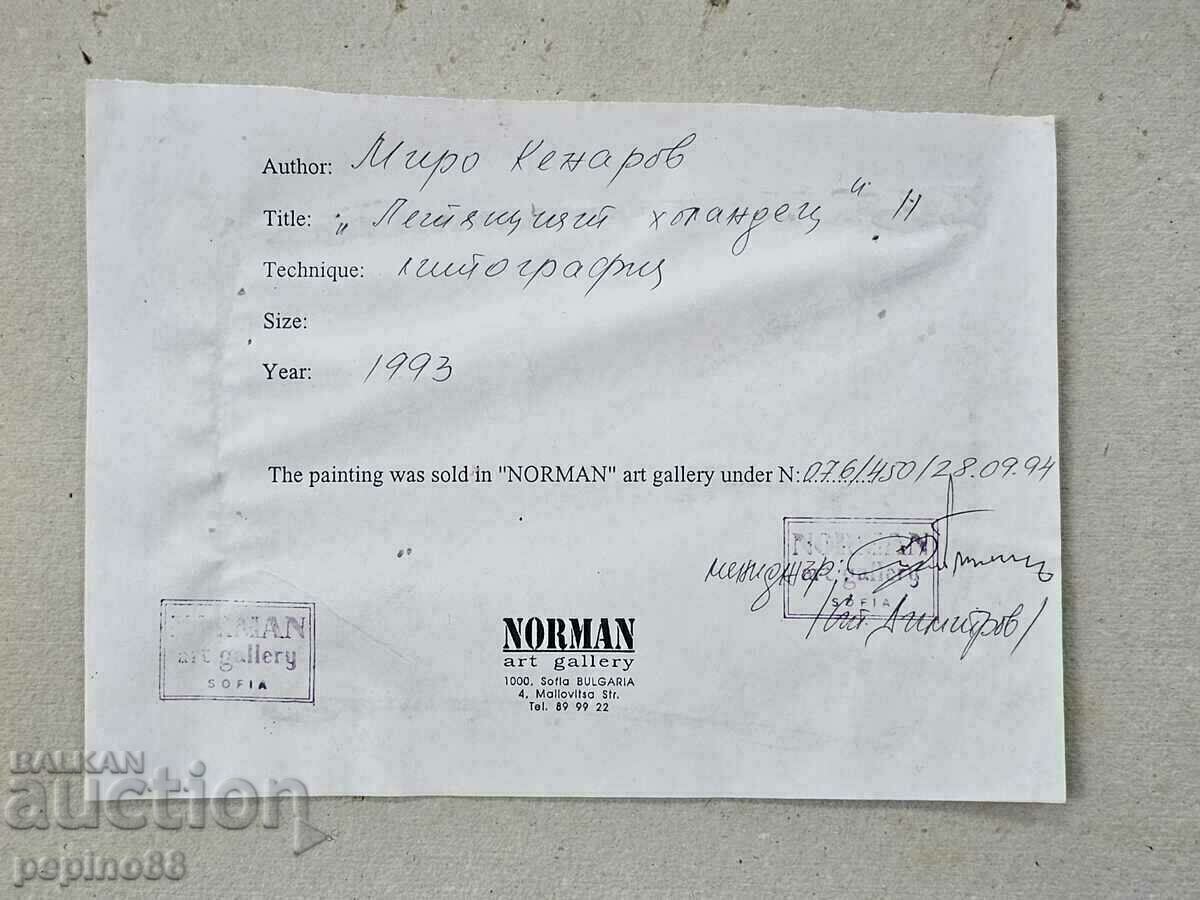 Author: Миро Кенаров
Title: „Летящият холандец“ II
Technique: литография
Size:
Year: 1993
The painting was sold in "NORMAN" art gallery under N: 076/450/28.09.94
NORMAN
art gallery
SOFIA
мениджър:
Димитров/
NORMAN
art gallery
SOFIA
NORMAN
art gallery
1000, Sofia BULGARIA
4, Mallovitsa Str.
Tel. 89 99 22
BALKAN
auction
pepino88